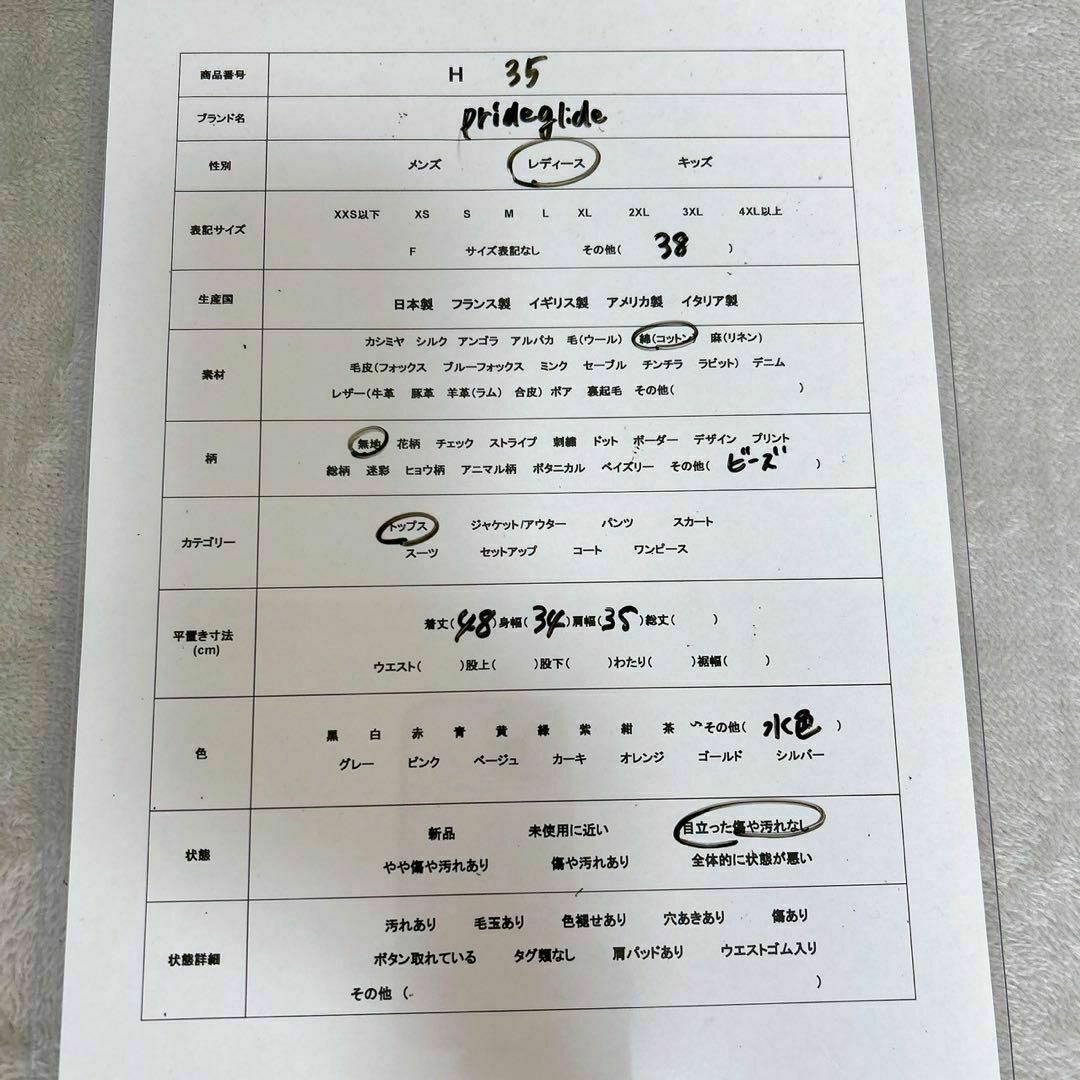 商品番号 H 35
ブランド名 prideglide
性別 メンズ レディース キッズ
XXS以下 XS S M L XL 2XL 3XL 4XL以上
表記サイズ
F サイズ表記なし その他( 38 )
生産国 日本製 フランス製 イギリス製 アメリカ製 イタリア製
カシミヤ シルク アンゴラ アルパカ 毛(ウール) 綿(コットン) 麻(リネン)
素材 毛皮(フォックス ブルーフォックス ミンク セーブル チンチラ ラビット) デニム
レザー(牛革 豚革 羊革(ラム) 合皮) ボア 裏起毛 その他( )
無地 花柄 チェック ストライプ 刺繍 ドット ボーダー デザイン プリント
柄
総柄 迷彩 ヒョウ柄 アニマル柄 ボタニカル ペイズリー その他( ビーズ )
トップス ジャケット/アウター パンツ スカート
カテゴリー
スーツ セットアップ コート ワンピース
着丈(48)身幅(34)肩幅(35)総丈( )
平置き寸法
(cm)
ウエスト( )股上( )股下( )わたり( )裾幅( )
黒 白 赤 青 黄 緑 紫 紺 茶 その他( 水色 )
色
グレー ピンク ベージュ カーキ オレンジ ゴールド シルバー
新品 未使用に近い 目立った傷や汚れなし
状態
やや傷や汚れあり 傷や汚れあり 全体的に状態が悪い
汚れあり 毛玉あり 色褪せあり 穴あきあり 傷あり
状態詳細 ボタン取れている タグ類なし 肩パッドあり ウエストゴム入り
その他 ( )